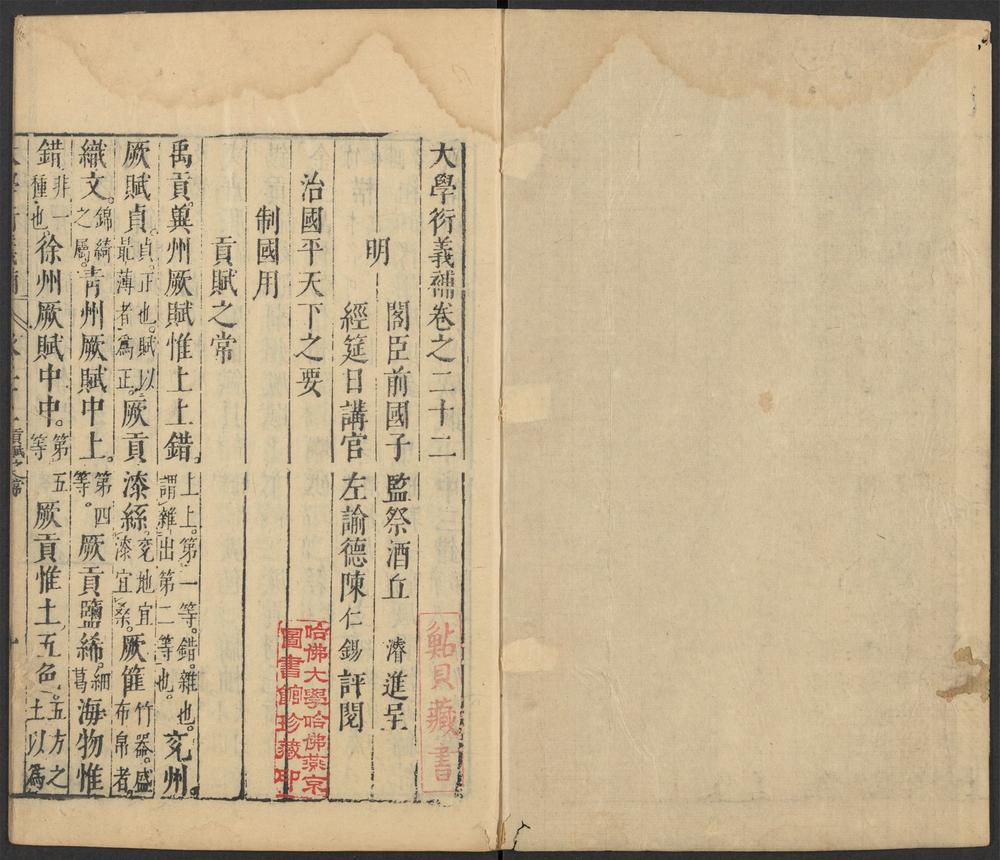 大學衍義補卷之二十二
明
閣臣前國子監祭酒丘濬進呈
經筵日講官左諭德陳仁錫評閱
治國平天下之要
制國用
貢賦之常
禹貢。冀州厥賦惟上上錯。上上。第一等。錯。雜也。謂雜出第二等也。兗州。
厥賦貞。貞。正也。賦以最薄者為正。厥貢漆絲。兗地宜漆宜桑。厥篚竹器。盛布帛者。
織文。錦綺之屬。青州厥賦中上。第四等。厥貢鹽絺。細葛海物惟
錯。非一種也。徐州厥賦中中。第五等厥貢惟土五色。五方之土以為
貢賦之常
鮎貝藏書
哈佛大學哈佛燕京
圖書館珍藏印